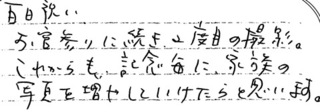 百日祝い
お宮参りに続き2度目の撮影。
これからも、記念毎に、家族の
写真を増やしていけたらと思います。